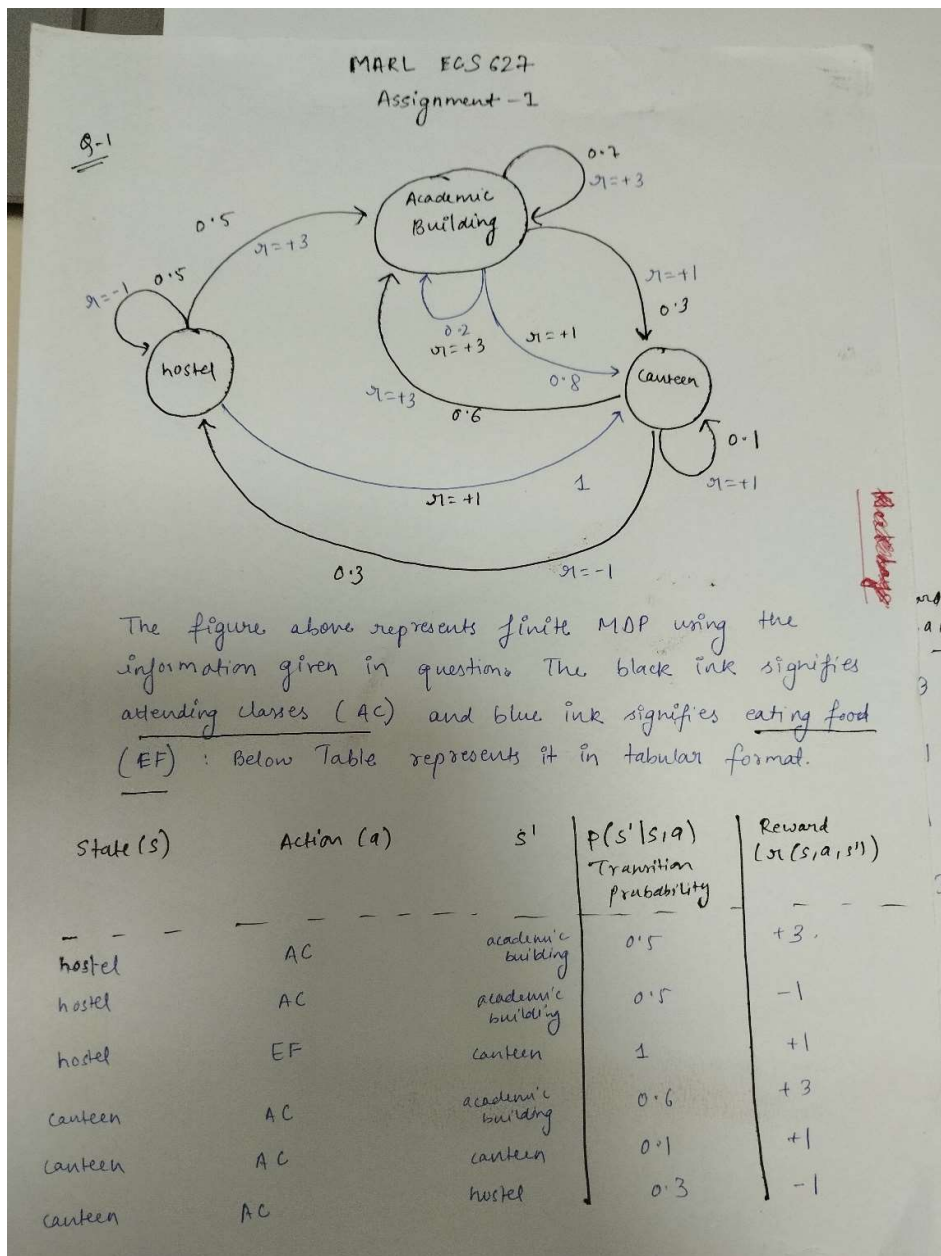 MARL ECS 627
Assignment - 1
Q-1
0.7
r=+3
Academic
Building
0.5
r=+3
0.5
r=-1
r=+1
0.3
0.2
r=+3
r=+1
0.8
hostel
canteen
r=+3
0.6
0.1
r=+1
r=+1
1
0.3
r=-1
The figure above represents finite MDP using the
information given in question. The black ink signifies
attending classes (AC) and blue ink signifies eating food
(EF) : Below Table represents it in tabular format.
State (s) Action (a) s' p(s'|s,a) Reward
Transition (r(s,a,s'))
Probability
hostel AC academic building 0.5 +3.
hostel AC academic building 0.5 -1
hostel EF canteen 1 +1
canteen AC academic building 0.6 +3
canteen AC canteen 0.1 +1
canteen AC hostel 0.3 -1